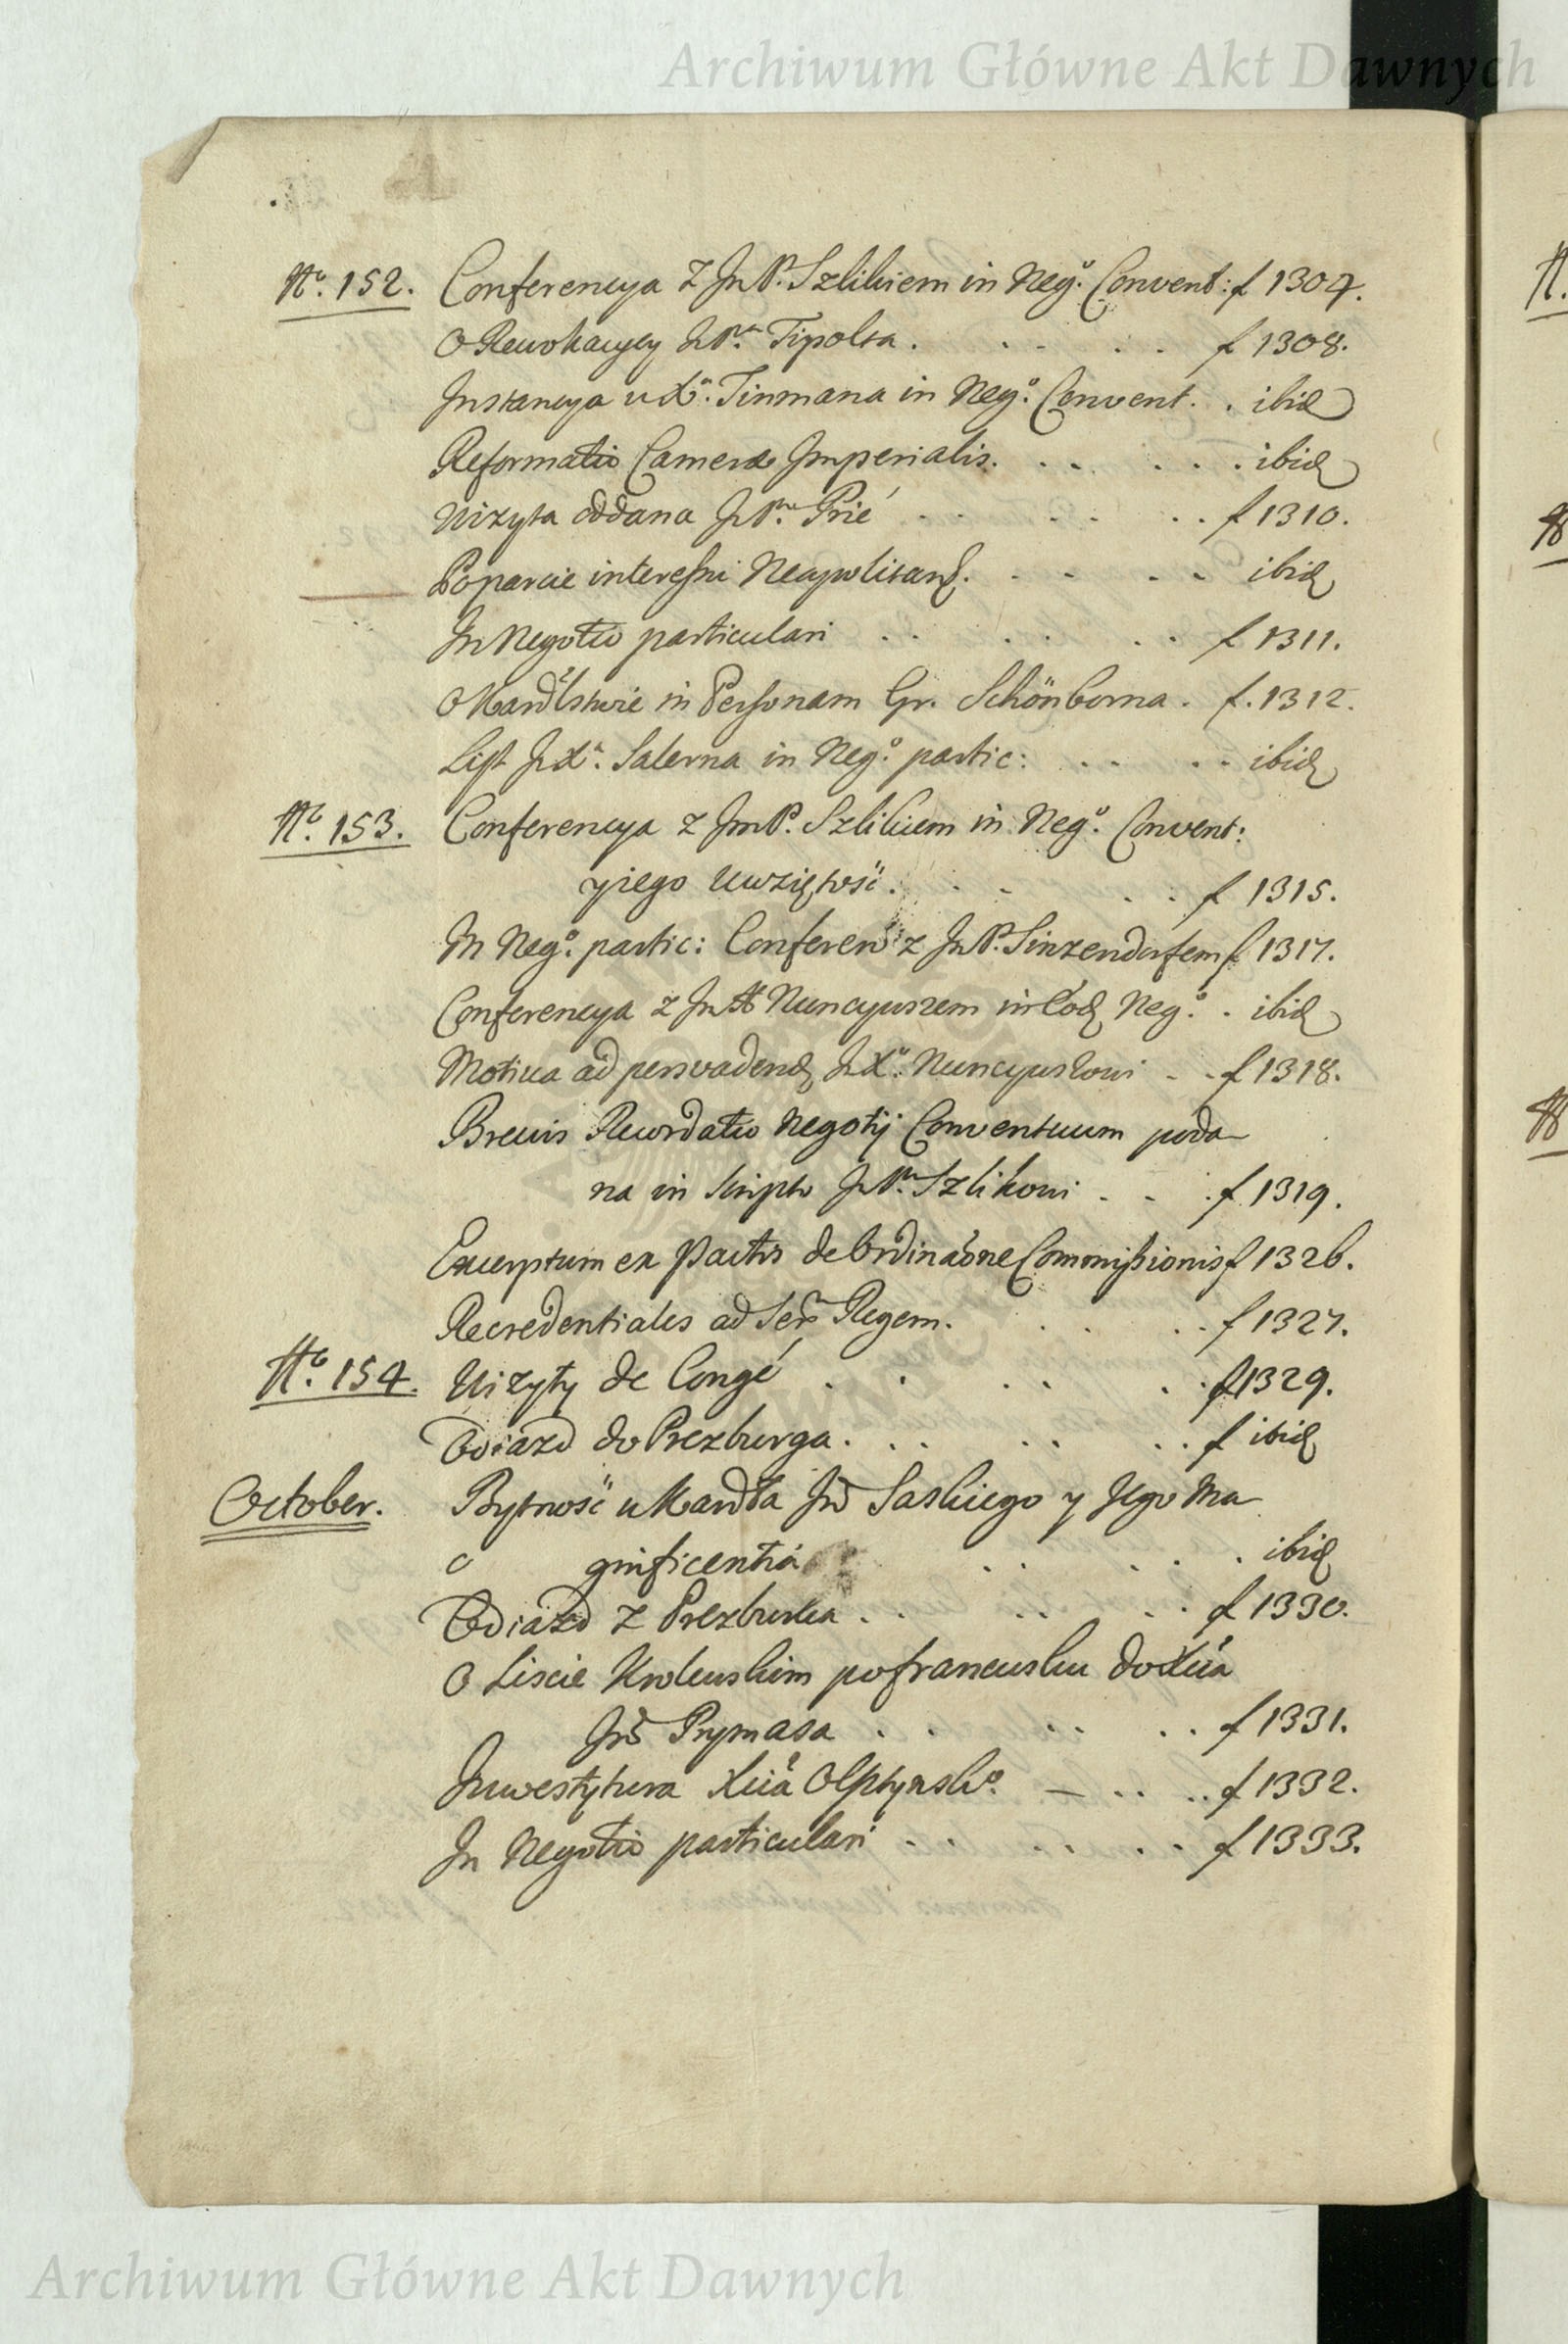 Archiwum Główne Akt Dawnych
No. 152. Conferencya z JmP. Szlikiem in Nego. Convent: f 1307.
O Rewokacyey JmPa. Tipolta . . . . . f 1308.
Instancya u Xa. Tinmana in Nego. Convent. . ibid
Reformatio Cameræ Imperialis. . . . . . . ibid
Wizyta oddana JmPni Prié . . . . . . f 1310.
Poparcie interessu Neapolitansk. . . . . ibid
In Negotio particulari . . . . . . f 1311.
O Kardlstwie in Personam Gr. Schönborna . f. 1312.
List JmXa. Salerna in Nego. partic: . . . . ibid
No. 153. Conferencya z JmP. Szlikiem in Nego. Convent:
y iego Uwziętość . . . . . f 1315.
In Nego. partic: Conferen. z JmP. Sinzendorfem f 1317.
Conferencya z Jm X Nuncyuszem in eod Nego. . ibid
Motiva ad persvadend JmXu. Nuncyuszowi . . f 1318.
Brevis Recordatio Negotij Conventuum poda-
na in scripto JmPu. Szlikowi . . . f. 1319.
Excerptum ex Pactis de Ordinaone Commissionis f 1326.
Recredentiales ad Serm Regem. . . . . f 1327.
No. 154. Wizyty de Congé . . . . . . f 1329.
Odiazd do Prezburga. . . . . . . . f ibid
October. Bytność u Kardła Jm Saskiego y Jego Ma-
gnificentia . . . . . . ibid
Odiazd z Prezburka . . . . . . . f 1330.
O Liscie Krolewskim po francusku do Xcia
Jm Prymasa . . . . . . f 1331.
Inwestytura Xcia Olsztynsko. — . . . . f 1332.
In Negotio particulari . . . . . . . f 1333.
Archiwum Główne Akt Dawnych